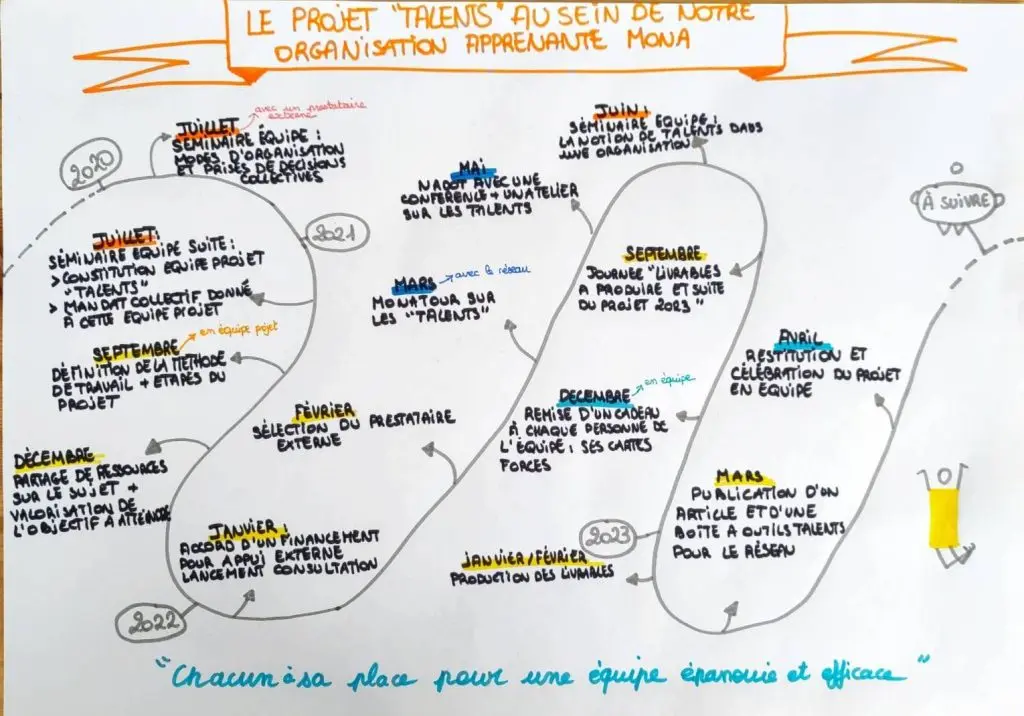 LE PROJET "TALENTS" AU SEIN DE NOTRE
ORGANISATION APPRENANTE MONA
2020
JUILLET
avec un prestataire
externe
SÉMINAIRE ÉQUIPE :
MODES D'ORGANISATION
ET PRISES DE DÉCISIONS
COLLECTIVES
2021
JUILLET:
SÉMINAIRE EQUIPE SUITE :
> CONSTITUTION EQUIPE PROJET
"TALENTS"
> MANDAT COLLECTIF DONNÉ
À CETTE EQUIPE PROJET
SEPTEMBRE
en équipe pojet
DÉFINITION DE LA MÉTHODE
DE TRAVAIL + ETAPES DU
PROJET
DÉCEMBRE
PARTAGE DE RESSOURCES
SUR LE SUJET +
VALORISATION DE
L'OBJECTIF À ATTEINDRE
2022
JANVIER :
ACCORD D'UN FINANCEMENT
POUR APPUI EXTERNE
LANCEMENT CONSULTATION
FÉVRIER
SÉLECTION DU PRESTATAIRE
EXTERNE
MARS
avec le réseau
MONATOUR SUR
LES "TALENTS"
MAI
NADOT AVEC UNE
CONFÉRENCE + UN ATELIER
SUR LES TALENTS
JUIN :
SÉMINAIRE EQUIPE :
LA NOTION DE TALENTS DANS
UNE ORGANISATION
SEPTEMBRE
JOURNÉE "LIVRABLES
A PRODUIRE ET SUITE
DU PROJET 2023"
DECEMBRE
en équipe
REMISE D'UN CADEAU
À CHAQUE PERSONNE DE
L'ÉQUIPE : SES CARTES
FORCES
2023
JANVIER/FÉVRIER
PRODUCTION DES LIVRABLES
MARS
PUBLICATION D'UN
ARTICLE ET D'UNE
BOÎTE A OUTILS TALENTS
POUR LE RÉSEAU
AVRIL
RESTITUTION ET
CÉLÉBRATION DU PROJET
EN ÉQUIPE
À SUIVRE
"Chacun à sa place pour une équipe épanouie et efficace"